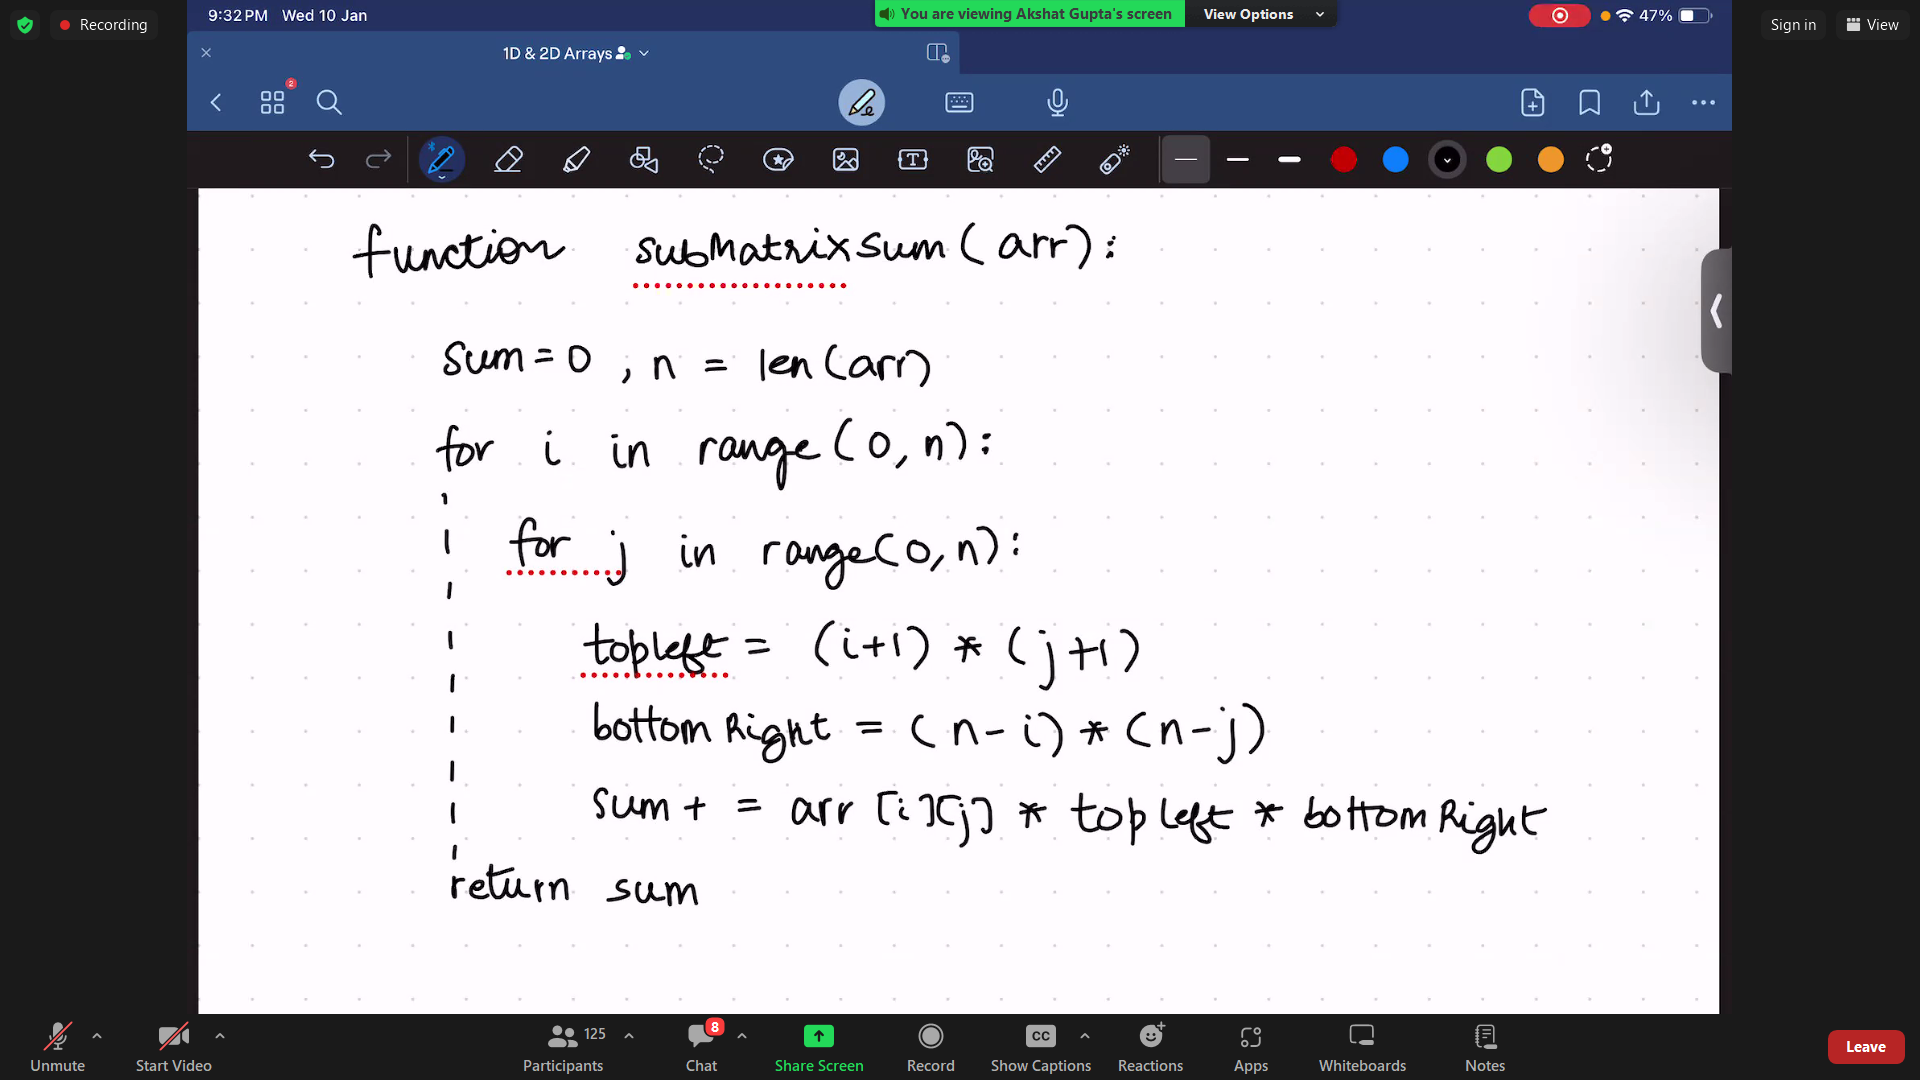 9:32 PM Wed 10 Jan
You are viewing Akshat Gupta's screen View Options
47%
Recording
Sign in View
1D & 2D Arrays
2
function subMatrixSum(arr):
sum=0, n = len(arr)
for i in range(0,n):
for j in range(0,n):
topleft = (i+1) * (j+1)
bottomRight = (n-i) * (n-j)
sum+ = arr[i][j] * topleft * bottomRight
return sum
Unmute
Start Video
125
Participants
8
Chat
Share Screen
Record
CC
Show Captions
Reactions
Apps
Whiteboards
Notes
Leave